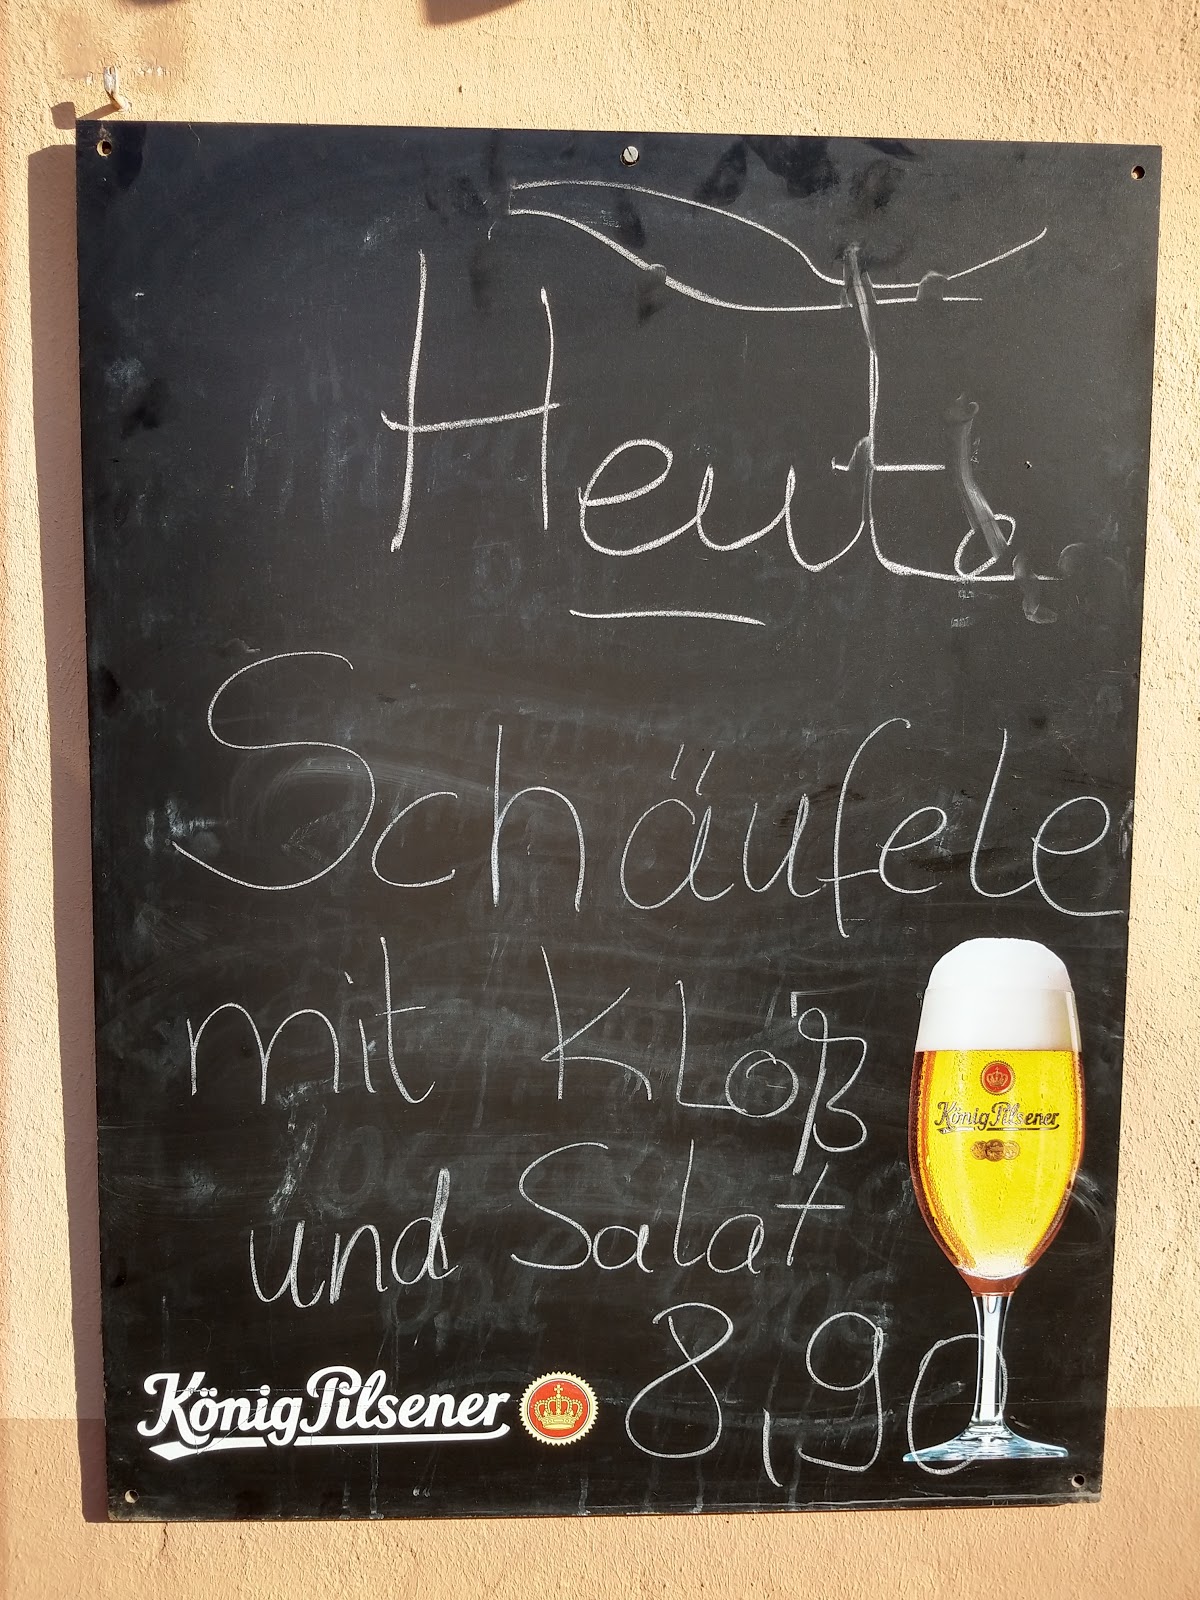 Heute
Schäufele
mit Kloß
und Salat
8,90
König Pilsener
König Pilsener